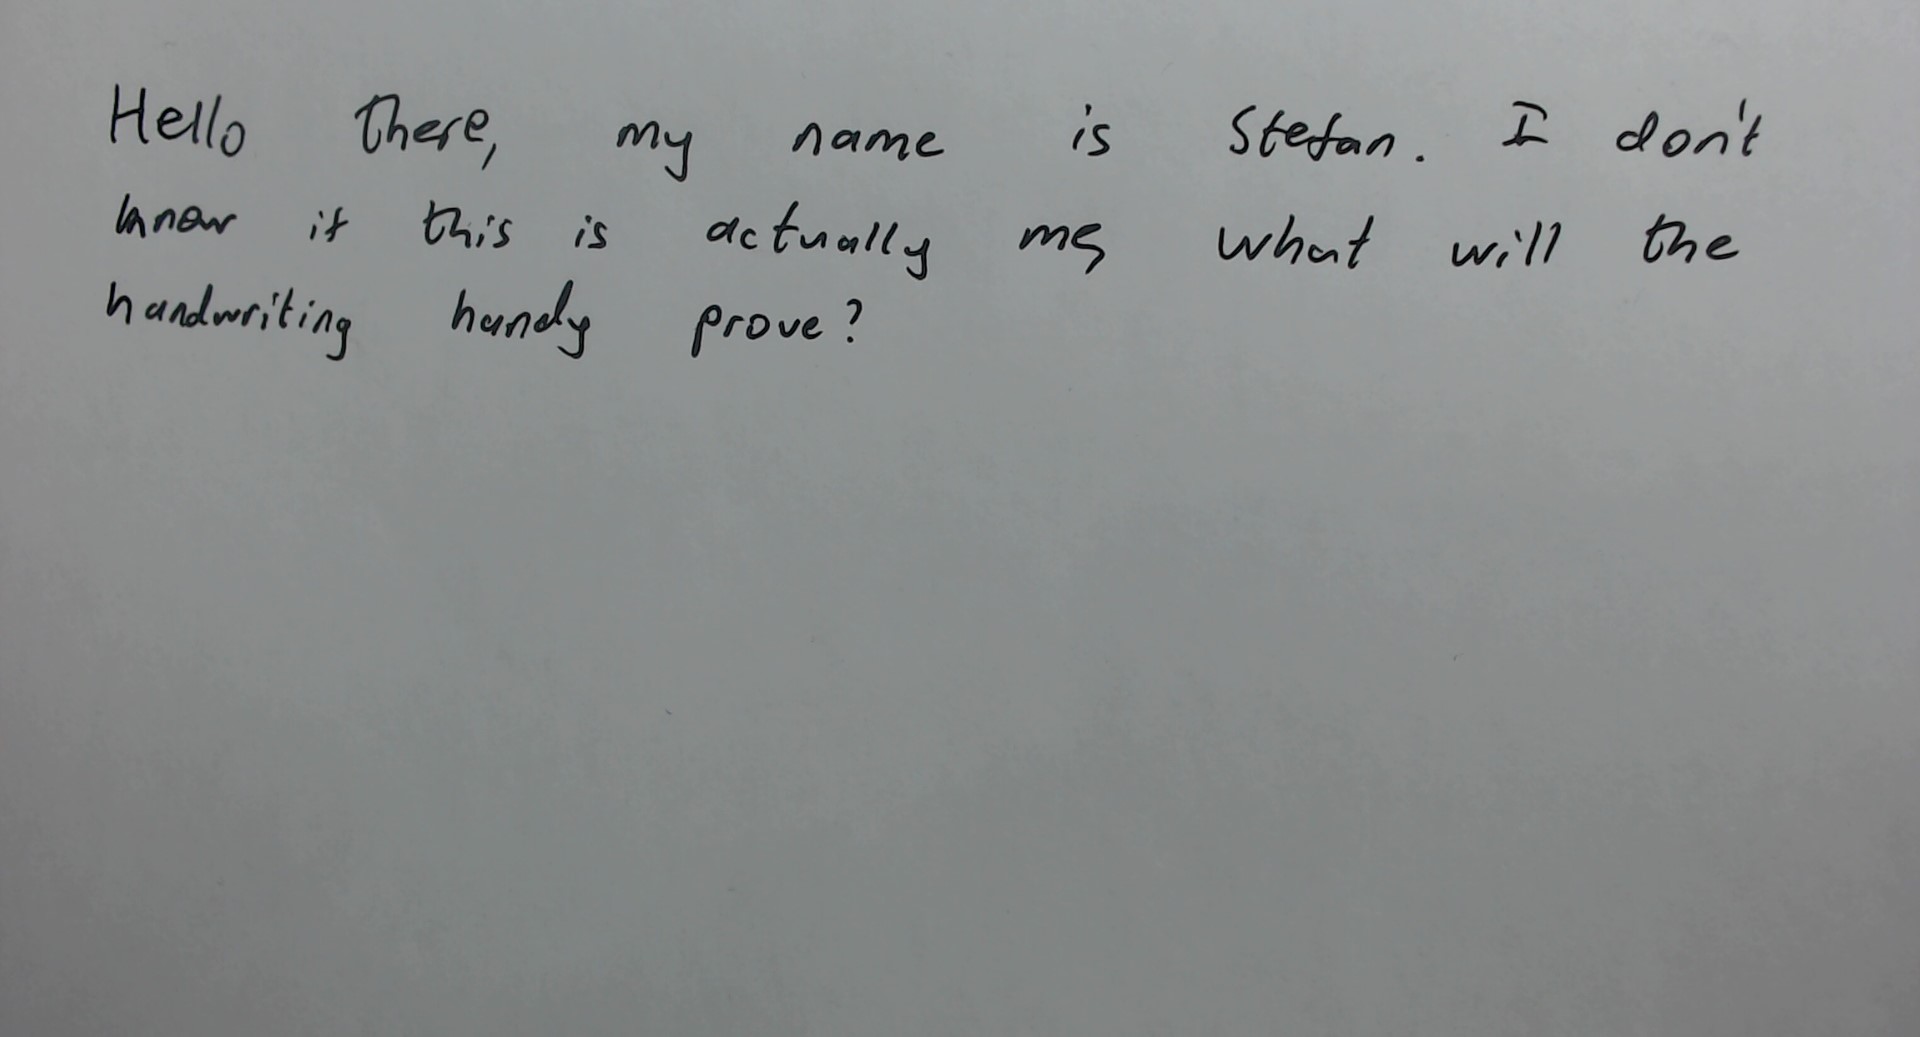 Hello there, my name is Stefan. I don't
know if this is actually me, what will the
handwriting handy prove?